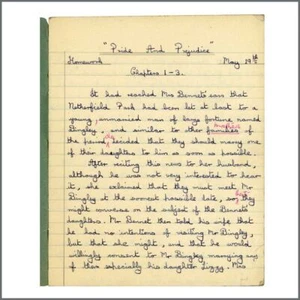 "Pride And Prejudice"
Homework May 19th
Chapters 1-3.
It had reached Mrs Bennet's ears that
Netherfield Park had been let at last to a
young, unmarried man of large fortune named
Bingley, and similar to other families of
the period decided that they should marry one
of their daughters to him as soon as possible.
After uttering this news to her husband,
although he was not very interested to hear
it, she exclaimed that they must meet Mr
Bingley at the soonest possible date, as they
might converse on the subject of the Bennets
daughters. Mr Bennet then told his wife that
he had no intentions of visiting Mr Bingley,
but that she might, and that he would
willingly consent to Mr Bingley marrying any
of them especially his daughter Lizzy. Mrs